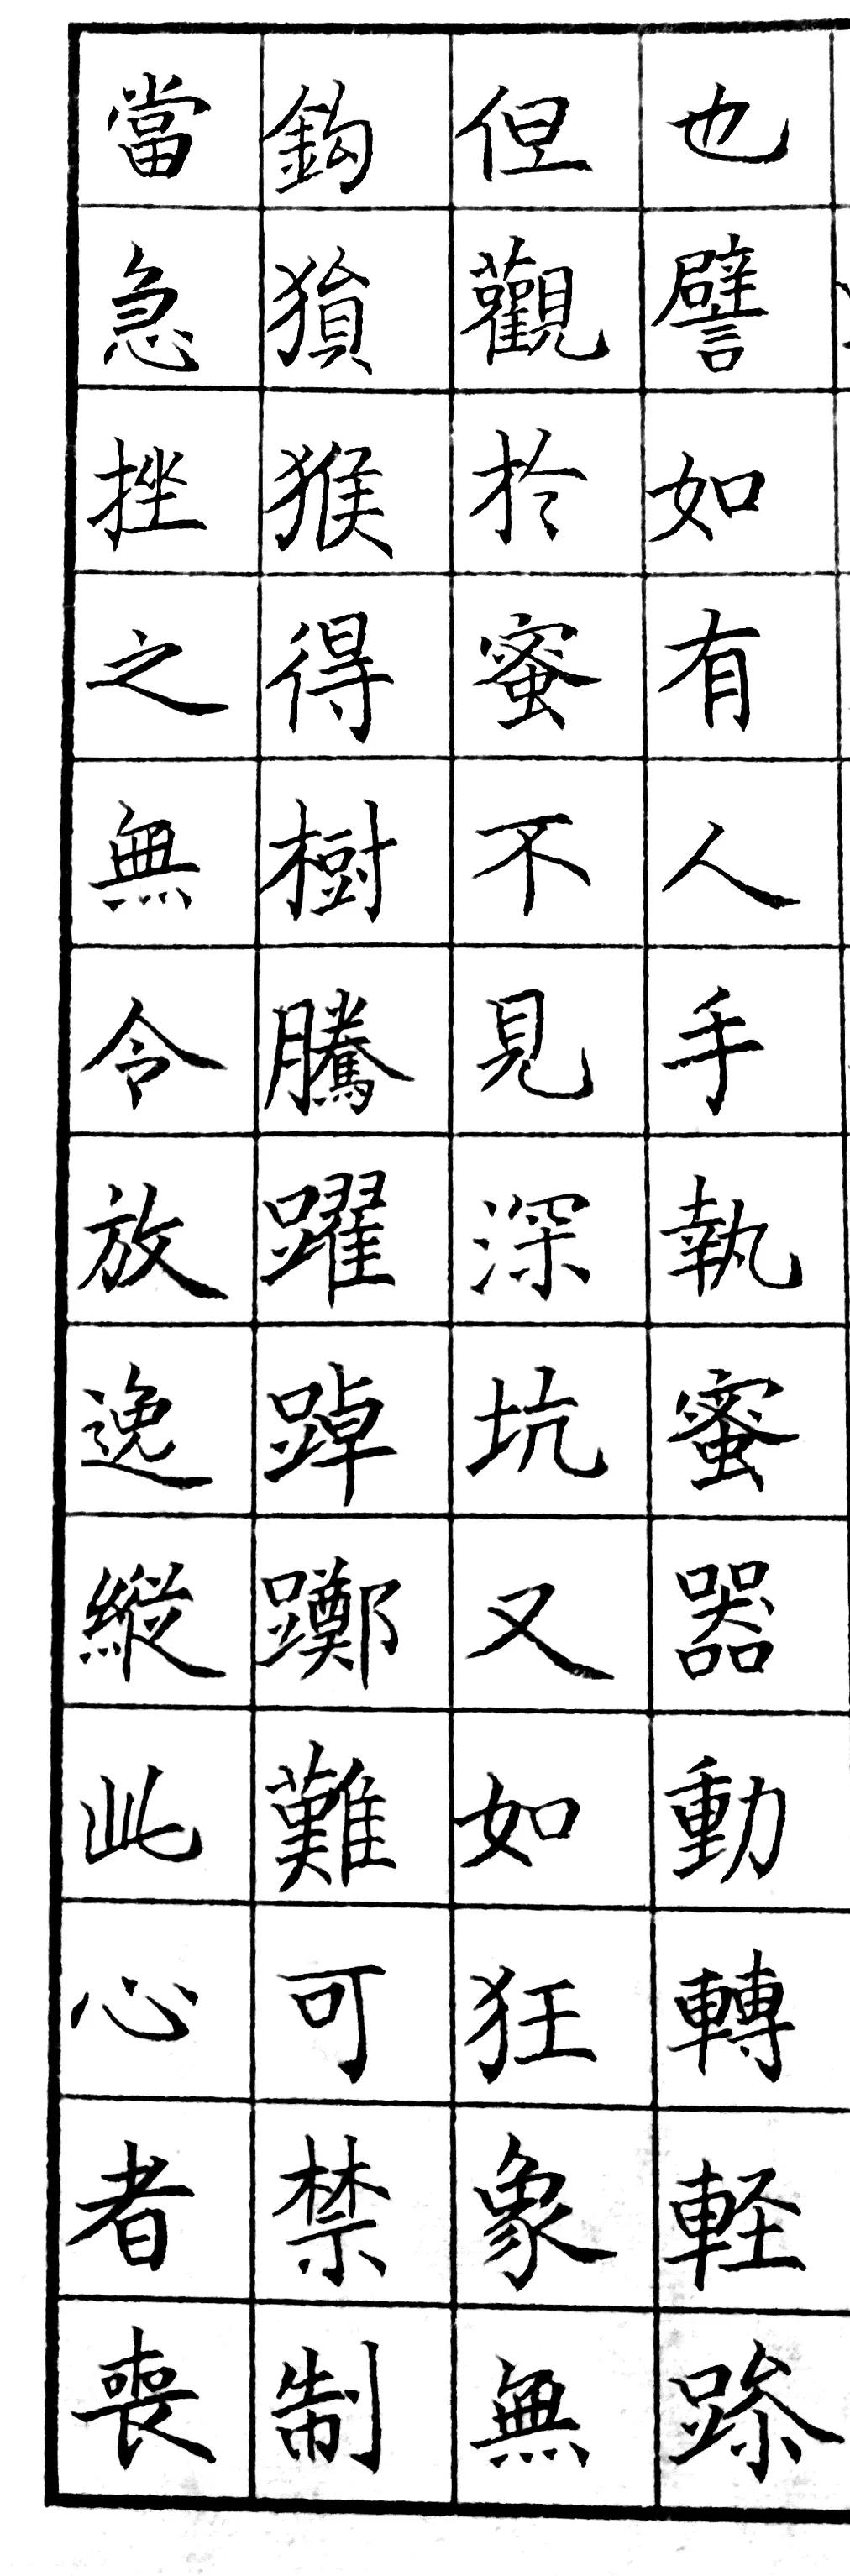 也譬如有人手執蜜器動轉軽跺
但觀於蜜不見深坑又如狂象無
鈎猨猴得樹騰躍踔躑難可禁制
當急挫之無令放逸縱此心者喪